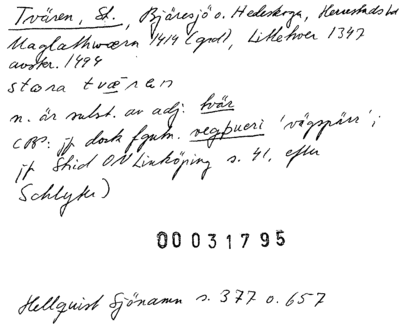 Tvären, St., Bjäresjö o. Hedeskoga, Herrestads hd
Maglathwærn 1414 (grd), Litlehver 1347
avskr. 1494
stóra tværen
n. är subst. av adj. tvär
(OBS: jf dock fgutn. vegþueri 'vägspärr';
jf Strid ON Linköping s. 41. efter
Schlyter)
00031795
Hellquist Sjönamn s. 377 o. 657